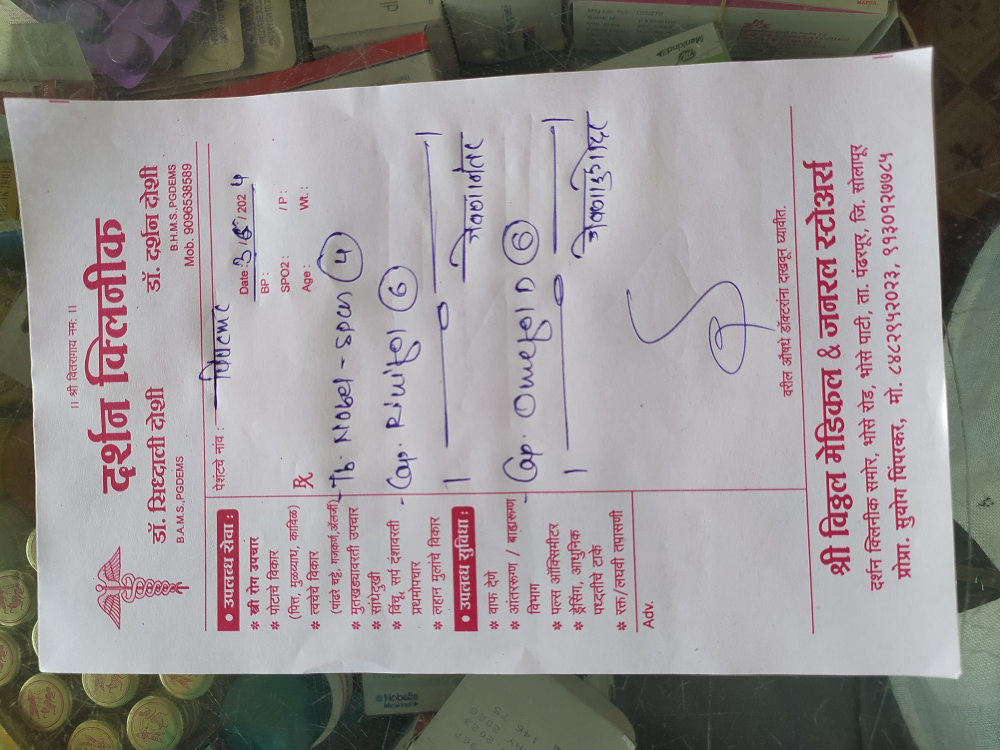 ॥ श्री वितरागाय नमः ॥
दर्शन क्लिनीक
डॉ. सिध्दाली दोशी
B.A.M.S.,PGDEMS
डॉ. दर्शन दोशी
B.H.M.S.,PGDEMS
Mob. 9096538589
पेशंटचे नांव :
Date : 3/6/2024
BP :
/P :
SPO2 :
Wt. :
Age :
• उपलब्ध सेवा :
* स्त्री रोग उपचार
* पोटाचे विकार
(पित्त, मुळव्याध, काविळ)
* त्वचेचे विकार
(पांढरे चट्टे, गजकर्ण, अॅलर्जी)
* मुतखड्यावरती उपचार
* सांधेदुखी
* विंचू, सर्प दंशावरती
प्रथमोपचार
* लहान मुलांचे विकार
• उपलब्ध सुविधा :
* वाफ देणे
* आंतररुग्ण / बाह्यरूग्ण
विभाग
* पल्स ऑक्सिमीटर
* ड्रेसिंग, आधुनिक
पध्दतीचे टाके
* रक्त/लघवी तपासणी
Adv.
Rx
- Tb. Nobel-spas (4)
- Cap. (6)
1 — 0 — 1
जेवणानंतर
- Cap. D (6)
1 — 0 — 1
जेवणापुर्वी
वरील औषधे डॉक्टरांना दाखवून घ्यावीत.
श्री विठ्ठल मेडिकल & जनरल स्टोअर्स
दर्शन क्लिनीक समोर, भोसे रोड, भोसे पाटी, ता. पंढरपूर, जि. सोलापूर
प्रोप्रा. सुयोग पिंपरकर, मो. ८४८२९५२०२३, ९१३०१२७७८५
Mankind
Nobelis